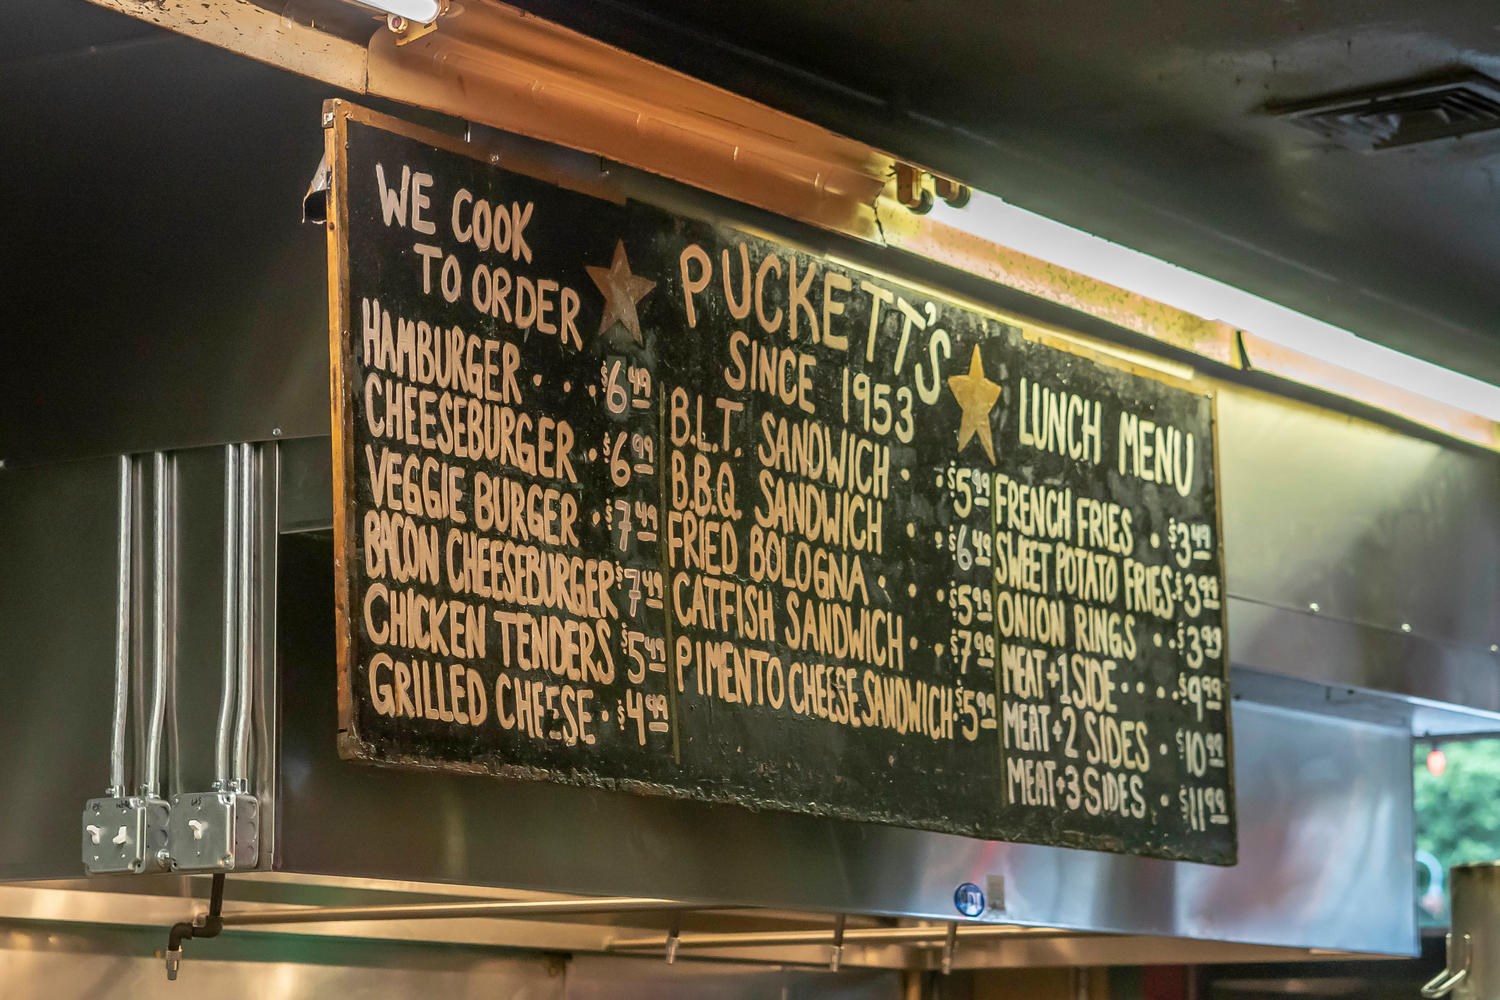 WE COOK
TO ORDER
HAMBURGER . . . $6.49
CHEESEBURGER . $6.99
VEGGIE BURGER . $7.49
BACON CHEESEBURGER $7.49
CHICKEN TENDERS $5.49
GRILLED CHEESE . $4.99
PUCKETT'S
SINCE 1953
B.L.T. SANDWICH . . $5.99
B.B.Q. SANDWICH . . $6.49
FRIED BOLOGNA . . . $5.99
CATFISH SANDWICH . . $7.99
PIMENTO CHEESE SANDWICH . $5.99
LUNCH MENU
FRENCH FRIES . $3.49
SWEET POTATO FRIES . $3.99
ONION RINGS . $3.99
MEAT + 1 SIDE . . . . $9.99
MEAT + 2 SIDES . $10.99
MEAT + 3 SIDES . $11.99